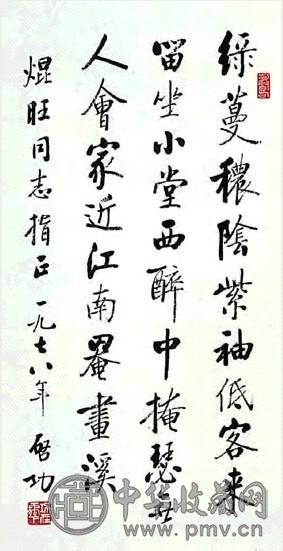 绿蔓穠陰紫袖低客来
留坐小堂西醉中掩瑟无
人會家近江南罨畫溪
焜旺同志指正 一九七八年 啓功
中华收藏网
www.pmv.cn